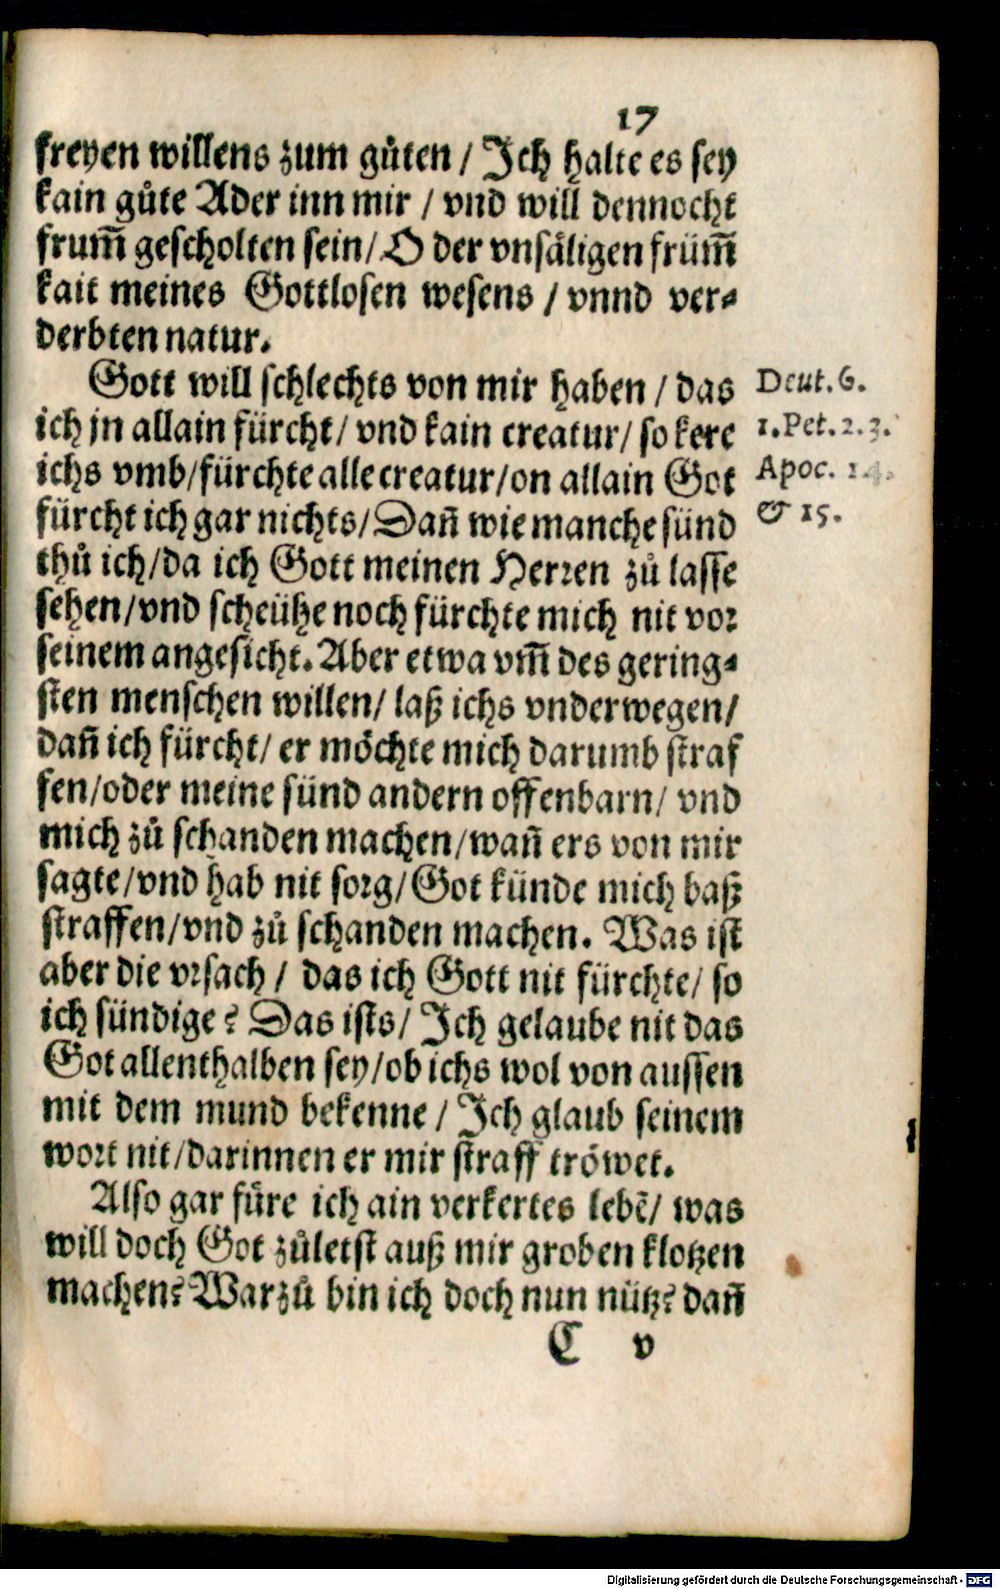 17
freyen willens zum gůten / Ich halte es sey
kain gůte Ader inn mir / vnd will dennocht
frum̃ gescholten sein / O der vnsäligen früm̃
kait meines Gottlosen wesens / vnnd ver⸗
derbten natur.
Gott will schlechts von mir haben / das
ich jn allain fürcht / vnd kain creatur / so kere
ichs vmb / fürchte alle creatur / on allain Got
fürcht ich gar nichts / Dañ wie manche sünd
thů ich / da ich Gott meinen Herren zů lasse
sehen / vnd scheütze noch fürchte mich nit vor
seinem angesicht. Aber etwa vm̃ des gering⸗
sten menschen willen / laß ichs vnderwegen /
dañ ich fürcht / er möchte mich darumb straf
fen / oder meine sünd andern offenbarn / vnd
mich zů schanden machen / wañ ers von mir
sagte / vnd hab nit sorg / Got künde mich baß
straffen / vnd zů schanden machen. Was ist
aber die vrsach / das ich Gott nit fürchte / so
ich sündige? Das ists / Ich gelaube nit das
Got allenthalben sey / ob ichs wol von aussen
mit dem mund bekenne / Ich glaub seinem
wort nit / darinnen er mir straff tröwet.
Also gar füre ich ain verkertes lebẽ / was
will doch Got zůletst auß mir groben klotzen
machen? Warzů bin ich doch nun nütz? dañ
C v
Deut. 6.
1. Pet. 2. 3.
Apoc. 14.
& 15.
Digitalisierung gefördert durch die Deutsche Forschungsgemeinschaft - DFG